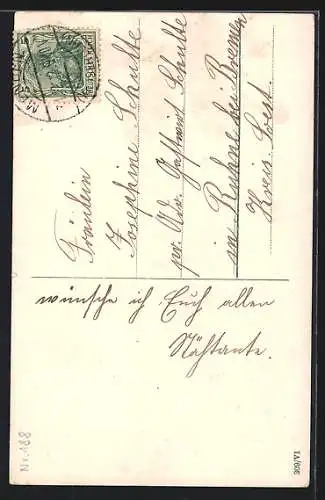 Fräulein
Josephine Schulte
pr. Adr. Gastwirt Schulte
in Ruhne bei Bremen
Kreis Soest.
wünsche ich Euch allen
Nähtante.
Nr. 188